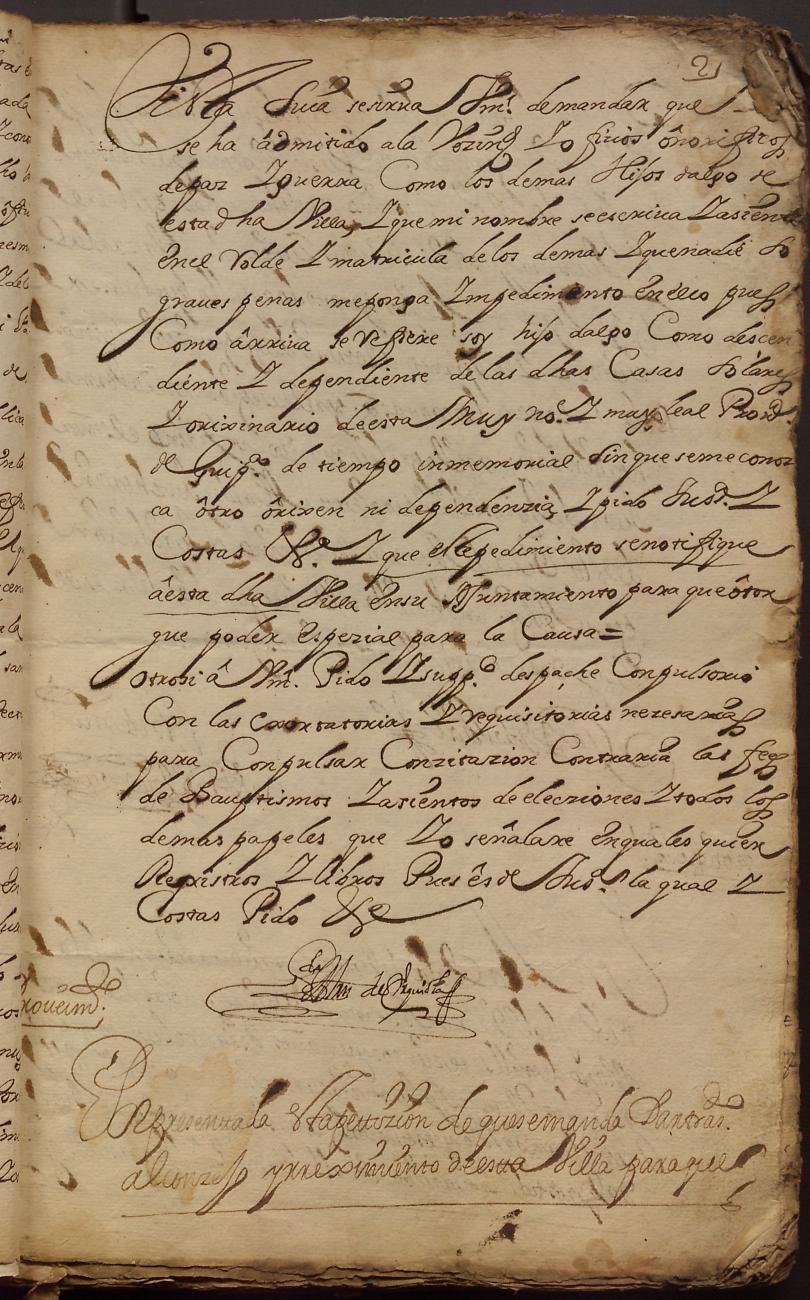 2
Si Vta Suia se sirua Vm. demandar que
se ha âdmitido ala Vezind Y o ficios ônorificos
de paz Y guerra Como los demas Hijos dalgo de
esta dha Villa, Y que mi nombre se escriua Y asiente
en el Rolde Y matricula delos demas Y que nadie so
graues penas me ponga Ympedimento en ello pues
Como ârriua se Refiere soy hijo dalgo Como descen
diente Y dependiente de las dhas Casas Solares
Y orixinario de esta Muy no. Y muy leal Prou.
de Guip.ᶜᵒ de tiempo inmemorial sin que se me conoz
ca ôtro ôrixen ni dependenzia, Y pido Jus. Y
Costas &ª. Y que este pedimiento se notifique
âesta dha Villa en su Ayuntamiento para que ôtor
gue poder espezial para la Causa=
Otrosi â Vm. Pido Y supp.ᶜᵒ despache Conpulsorio
Con las exortatorias Y requisitorias nezesarias
para Conpulsar Conzitazion Contraria las fees
de Bauptismos Y asientos de elecziones Y todos los
demas papeles que Yo señalare en quales quier
Registros Y libros Pues es de Jus.ª la qual Y
Costas Pido &ª
de
Proueim.ᵗᵒ
En presentada esta petizion de que se manda Dar tras.
al conzejo y rreximiento de esta Villa para que